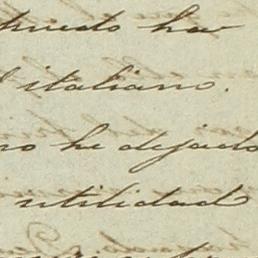 puedo ha
italiano.
no he dejado
utilidad